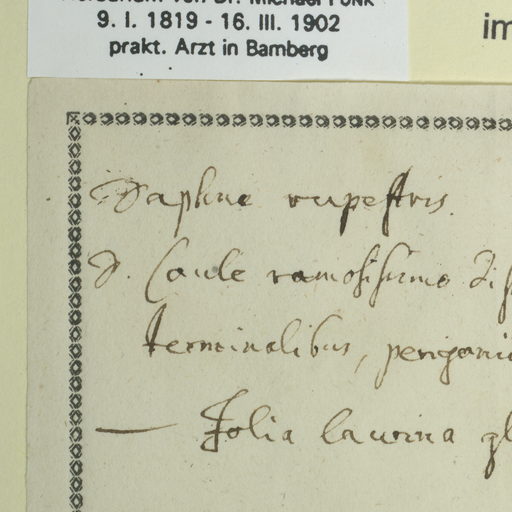 Herbarium von Dr. Michael Funk
9. I. 1819 - 16. III. 1902
prakt. Arzt in Bamberg
im
Daphne rupestris.
D. Caule ramosissimo dif
terminalibus, perigonii
— Folia laurina gl